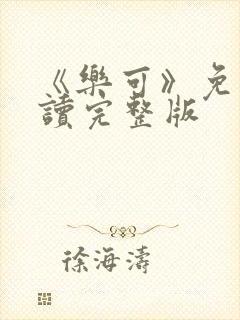 《樂可》免
讀完整版
徐海濤